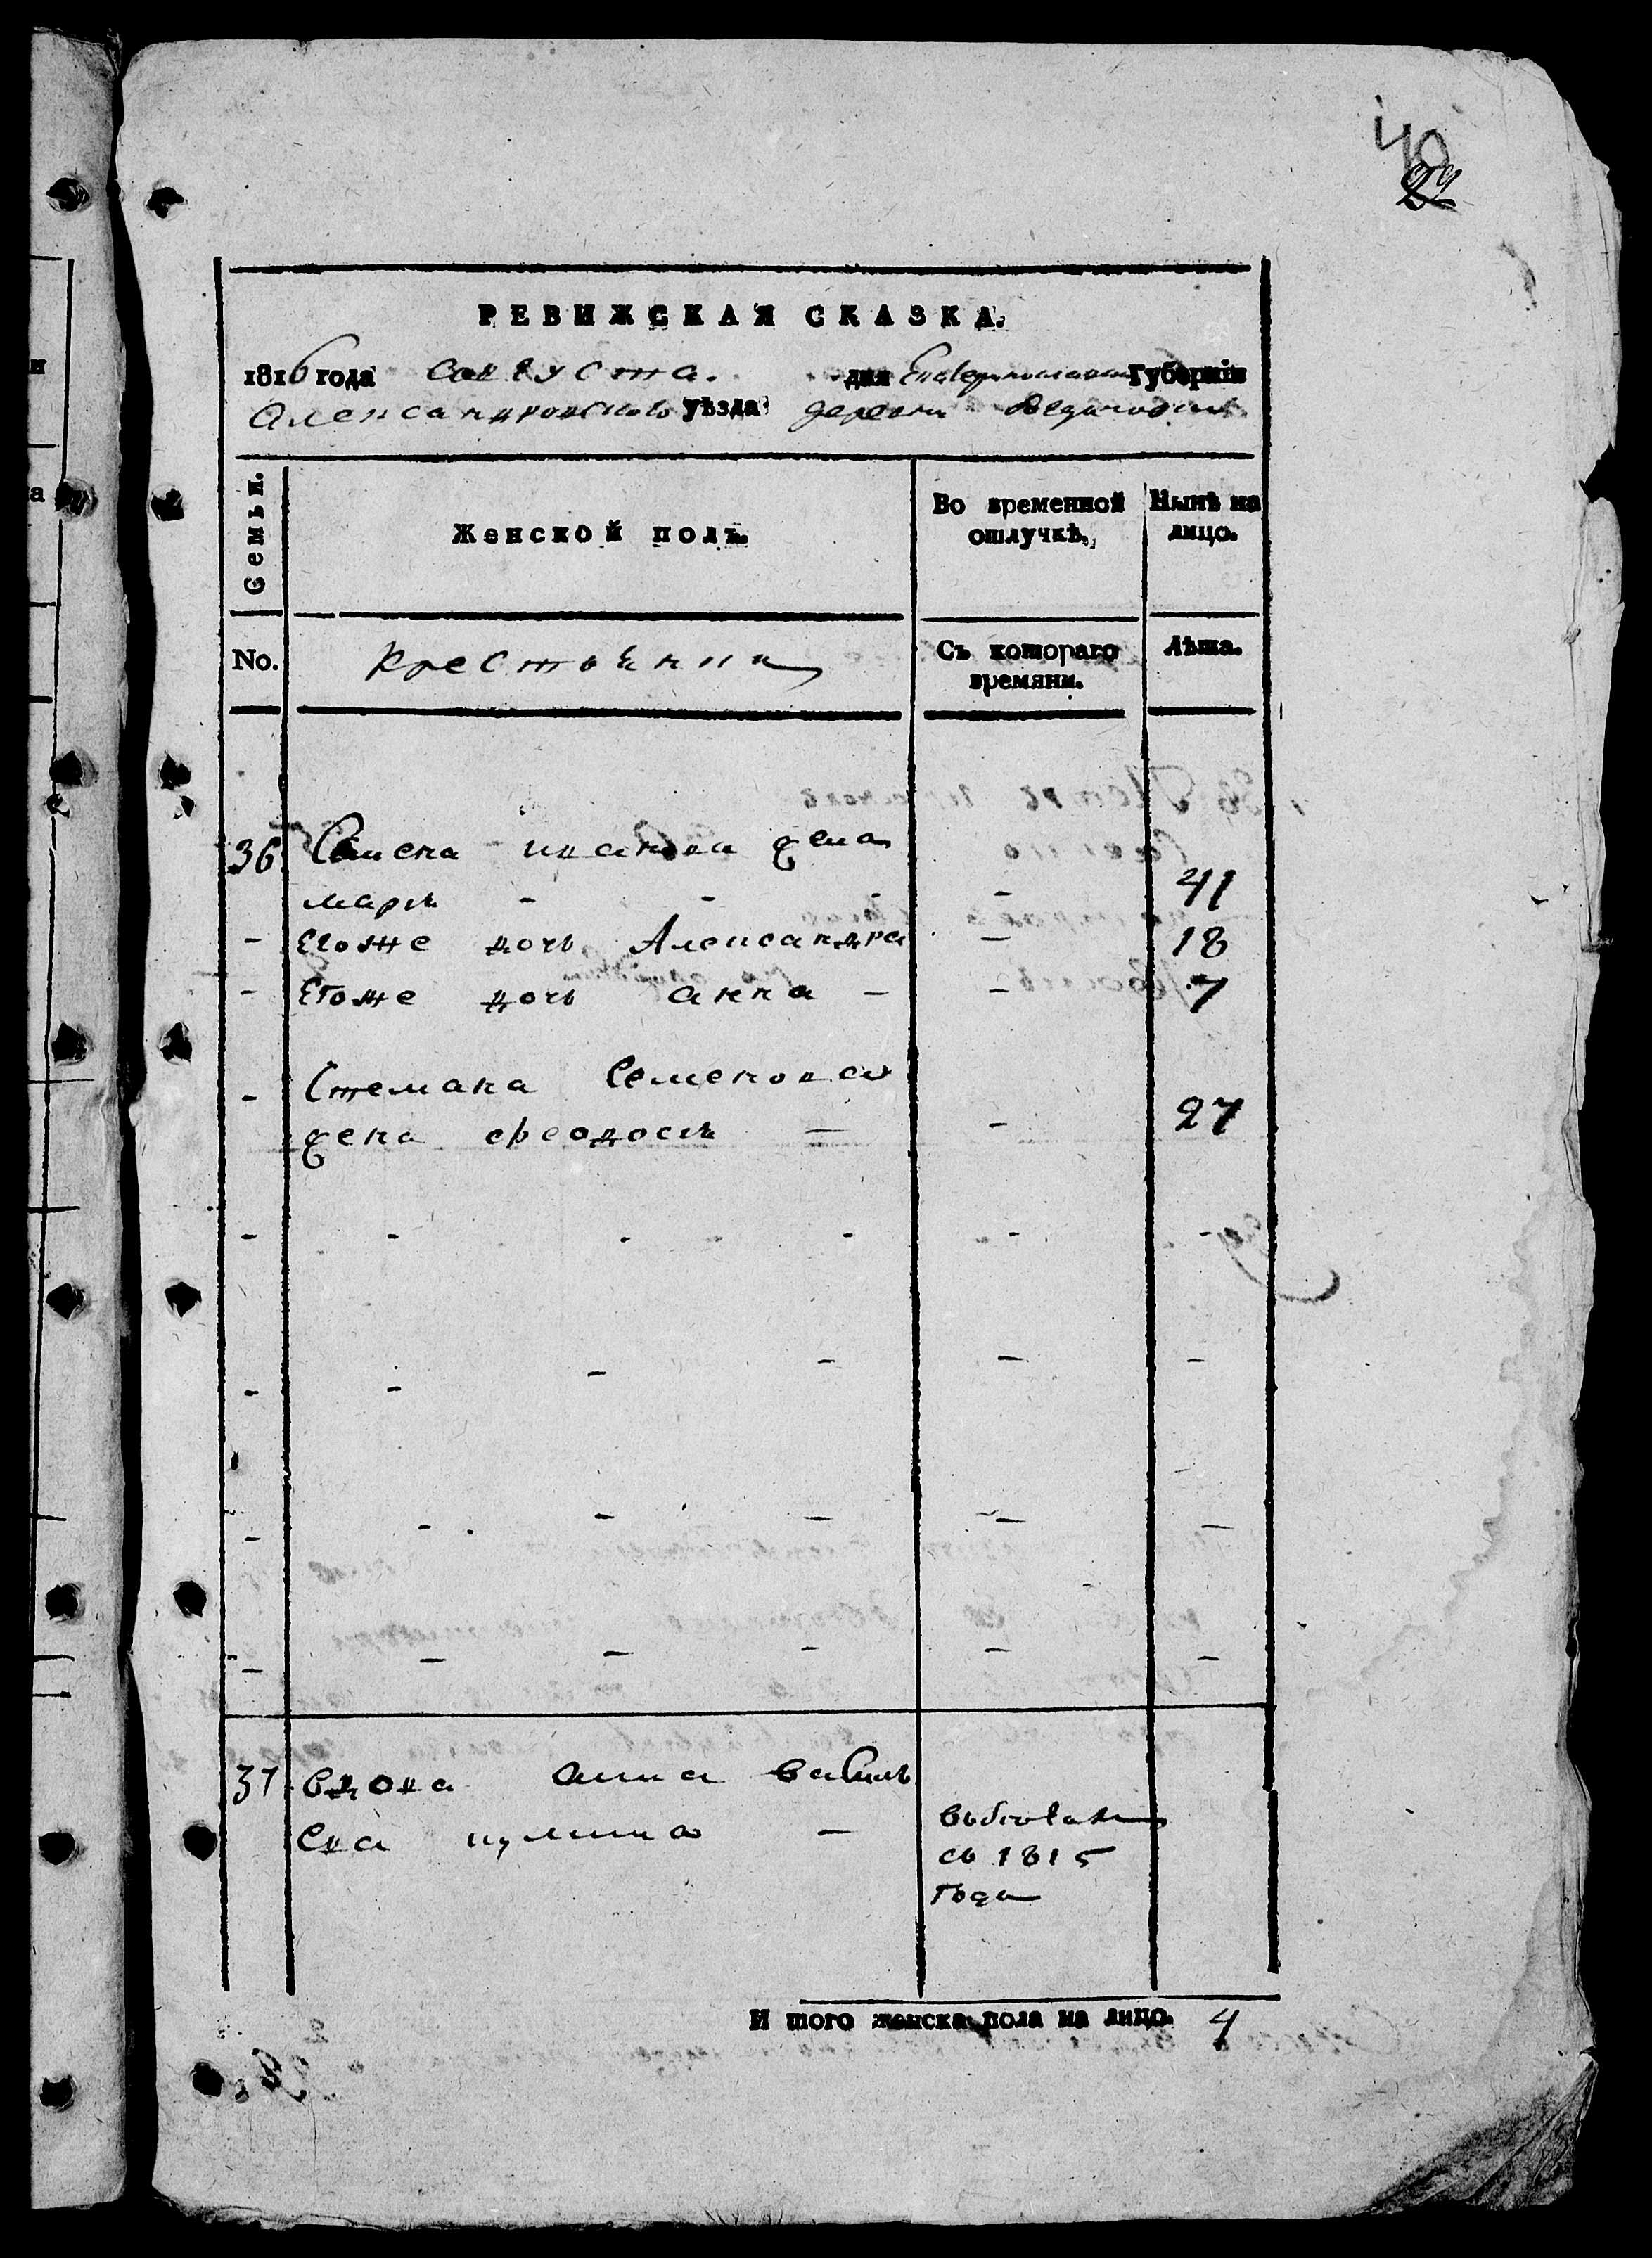 40
22
РЕВИЖСКАЯ СКАЗКА.
1816 года августа. дня Екатеринославской Губерніи
Александровского уѣзда деревни
Семьи.
Женской полъ.
Во временной отлучкѣ,
Нынѣ на лицо.
No.
крестьянки
Съ котораго времяни.
Лѣта.
36 Семена иванова жена
марья - - - - 41
- Егоже дочь Александра - 18
- Егоже дочь анна - - 7
- Степана Семенова
жена феодосья - - 27
37 вдова анна василь
ева -
съ 1815
года
И того женска пола на лицо. 4